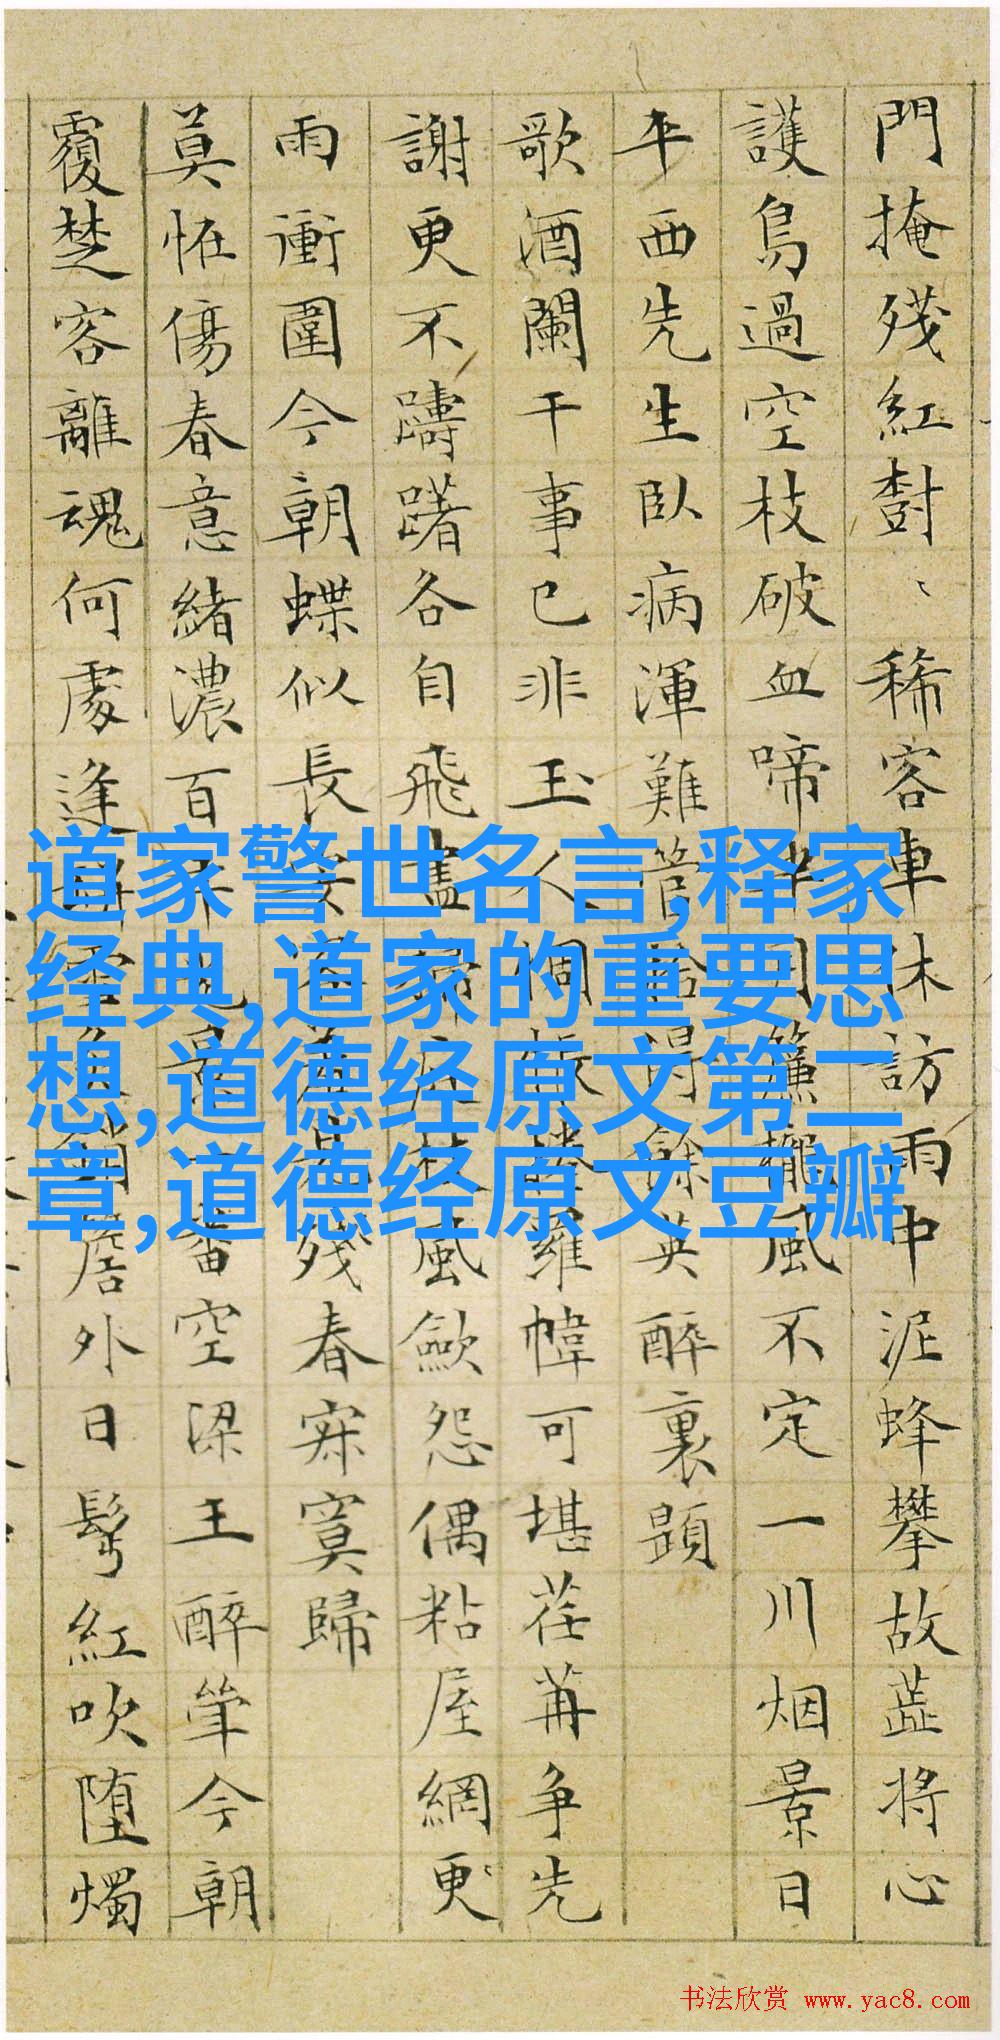 門掩殘紅樹〻稀客車休訪雨中泥蜂攀故蕋將心
護鳥過空枝破血啼半月簾櫳風不定一川烟景日
平西先生臥病渾難管拾得餘英醉裏題
歌酒闌干事已非玉人惆悵捲羅幃可堪荏苒争先
謝更不躊躇各自飛盡歸風歛怨偶粘屋網更
雨衝圍今朝蝶似長安客殘春寂寞歸
莫恠傷春意緒濃百年光景一番空梁王醉今朝
覆楚客離魂何處逢負簷外日髩紅吹堕燭
道家警世名言,释家
经典,道家的重要思
想,道德经原文第二
章,道德经原文豆瓣
书法欣赏 www.yac8.com